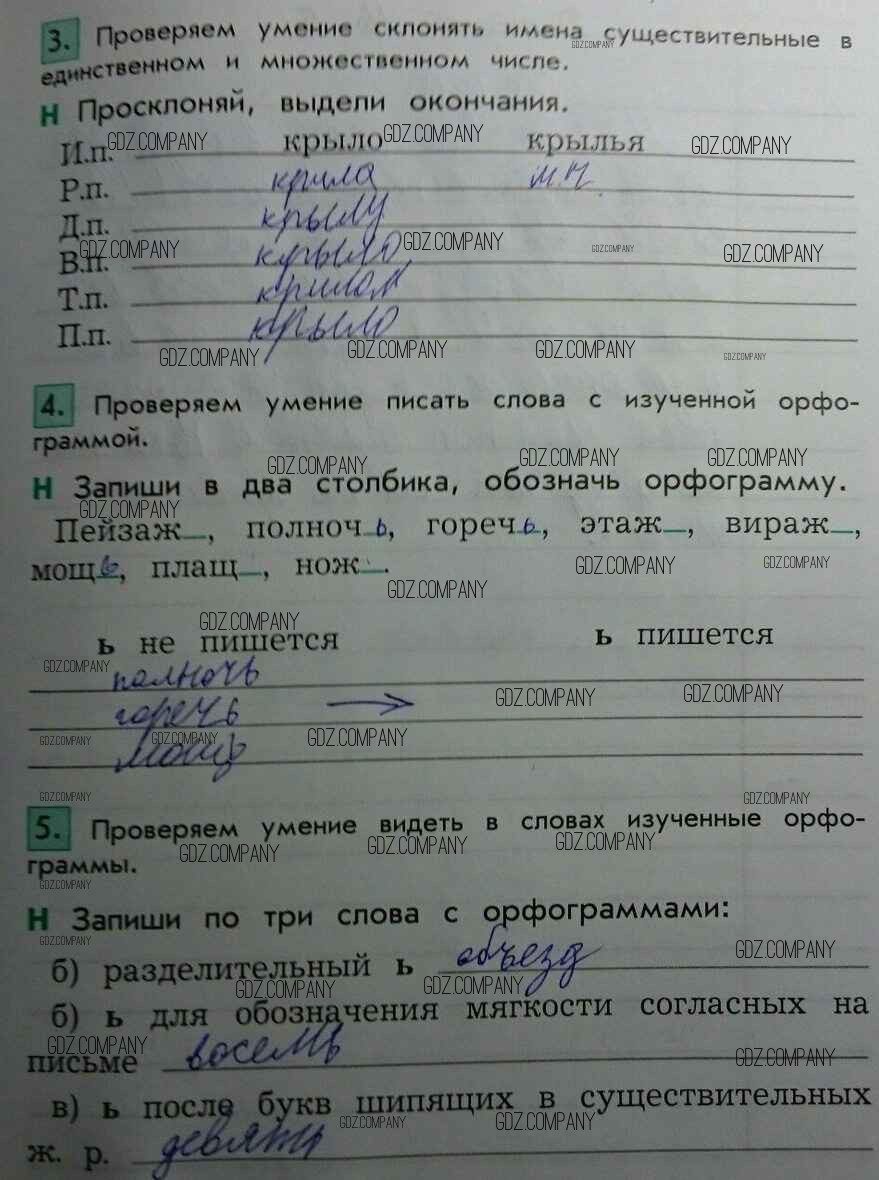 3. Проверяем умение склонять имена существительные в
единственном и множественном числе.
Н Просклоняй, выдели окончания.
И.п. крыло крылья
Р.п. крила м.н.
Д.п. крылу
В.п. крыло
Т.п. крилом
П.п. крыло
4. Проверяем умение писать слова с изученной орфо-
граммой.
Н Запиши в два столбика, обозначь орфограмму.
Пейзаж_, полночь, горечь, этаж_, вираж_,
мощь, плащ_, нож_.
ь не пишется ь пишется
полночь
горечь →
мощь
5. Проверяем умение видеть в словах изученные орфо-
граммы.
Н Запиши по три слова с орфограммами:
б) разделительный ь объезд
б) ь для обозначения мягкости согласных на
письме восемь
в) ь после букв шипящих в существительных
ж. р. девять
GDZ.COMPANY